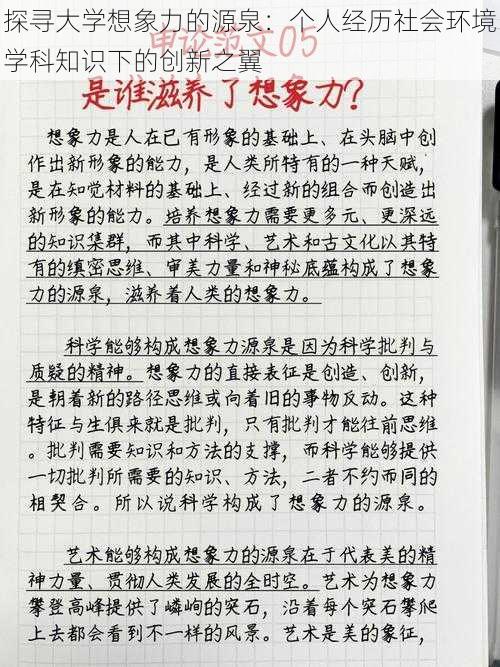 探寻大学想象力的源泉：个人经历社会环境
学科知识下的创新之翼
申论范文05
是谁滋养了想象力？
想象力是人在已有形象的基础上、在头脑中创
作出新形象的能力，是人类所特有的一种天赋，
是在知觉材料的基础上、经过新的组合而创造出
新形象的能力。培养想象力需要更多元、更深远
的知识集群，而其中科学、艺术和古文化以其特
有的缜密思维、审美力量和神秘底蕴构成了想象
力的源泉，滋养着人类的想象力。
科学能够构成想象力源泉是因为科学批判与
质疑的精神。想象力的直接表征是创造、创新，
是朝着新的路径思维或向着旧的事物反动。这种
特征与生俱来就是批判，只有批判才能往前思维
。批判需要知识和方法的支撑，而科学能够提供
一切批判所需要的知识、方法，二者不约而同的
相契合。所以说科学构成了想象力的源泉。
艺术能够构成想象力的源泉在于代表美的精
神力量、贯彻人类发展的全时空。艺术为想象力
攀登高峰提供了嶙峋的突石，沿着每个突石攀爬
上去都会看到不一样的风景。艺术是美的象征，